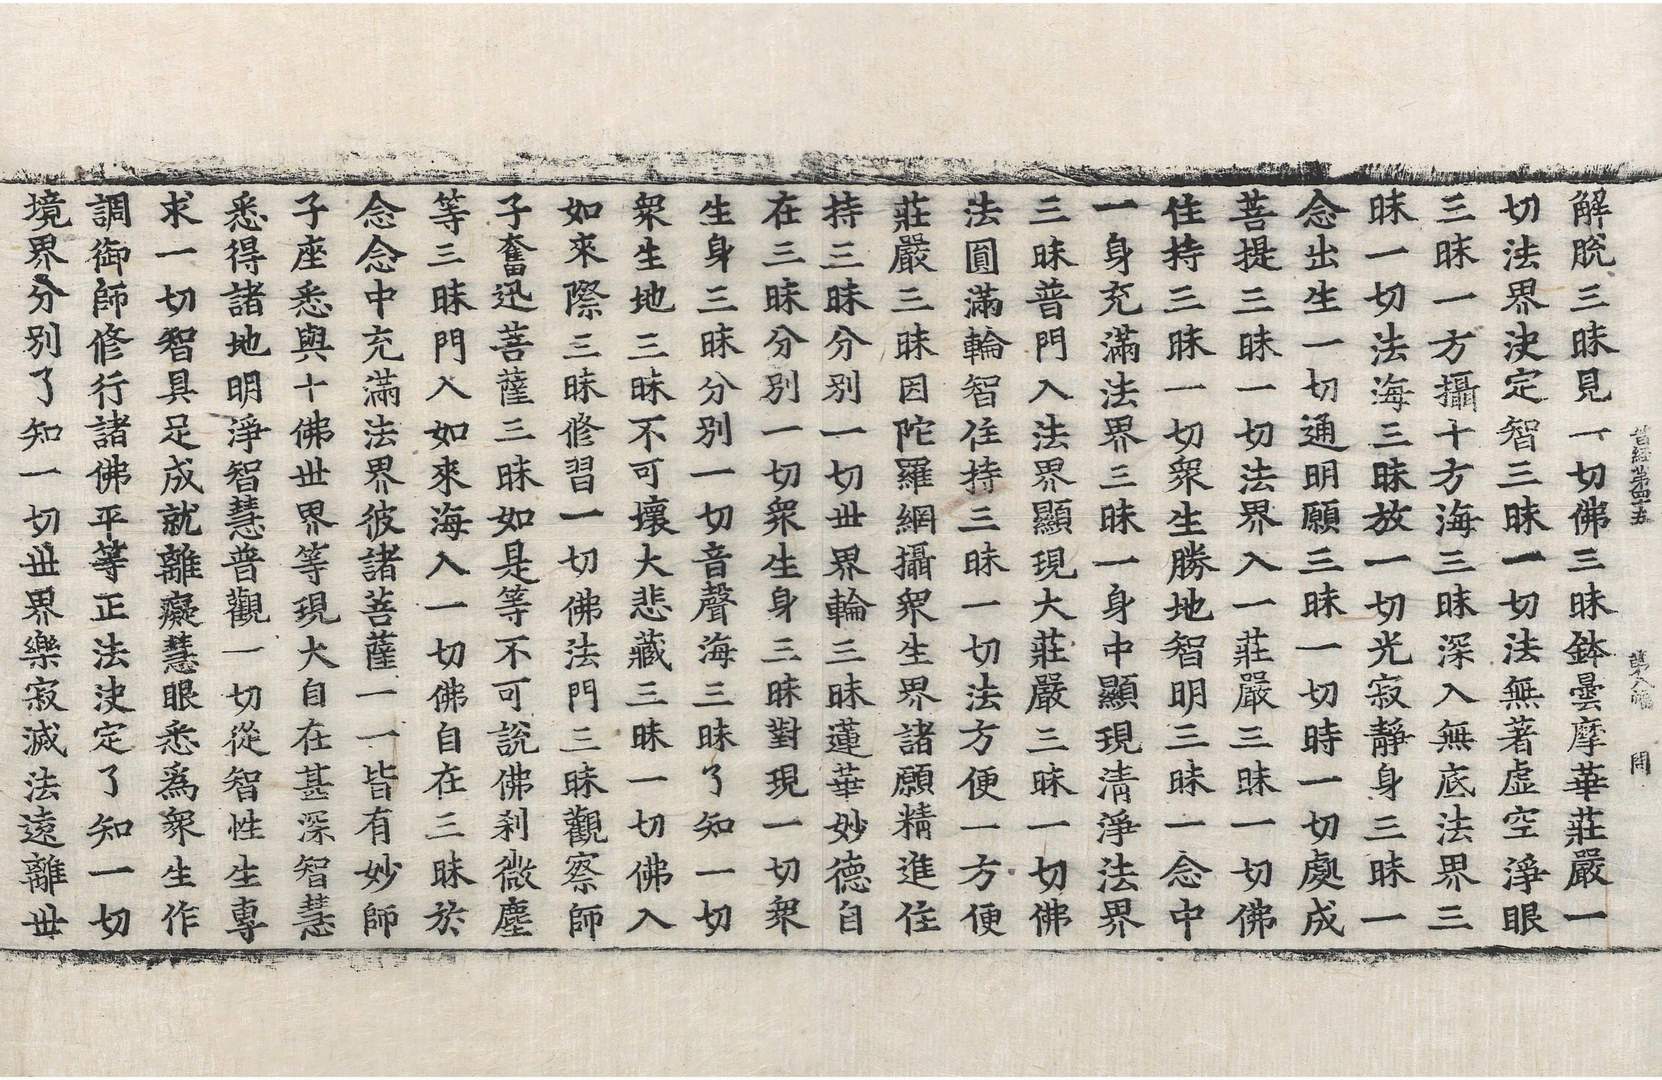 晋經第四十五 第八幅
解脫三昧見一切佛三昧鉢曇摩華莊嚴一
切法界決定智三昧一切法無著虛空淨眼
三昧一方攝十方海三昧深入無底法界三
昧一切法海三昧放一切光寂靜身三昧一
念出生一切通明願三昧一切時一切處成
菩提三昧一切法界入一莊嚴三昧一切佛
住持三昧一切衆生勝地智明三昧一念中
一身充滿法界三昧一身中顯現清淨法界
三昧普門入法界顯現大莊嚴三昧一切佛
法圓滿輪智住持三昧一切法方便一方便
莊嚴三昧因陀羅網攝衆生界諸願精進住
持三昧分別一切世界輪三昧蓮華妙德自
在三昧分別一切衆生身三昧對現一切衆
生身三昧分別一切音聲海三昧了知一切
衆生地三昧不可壞大悲藏三昧一切佛入
如來際三昧修習一切佛法門三昧觀察師
子奮迅菩薩三昧如是等不可說佛刹微塵
等三昧門入如來海入一切佛自在三昧於
念念中充滿法界彼諸菩薩一一皆有妙師
子座悉與十佛世界等現大自在甚深智慧
悉得諸地明淨智慧普觀一切從智性生專
求一切智具足成就離癡慧眼悉爲衆生作
調御師修行諸佛平等正法決定了知一切
境界分別了知一切世界樂寂滅法遠離世